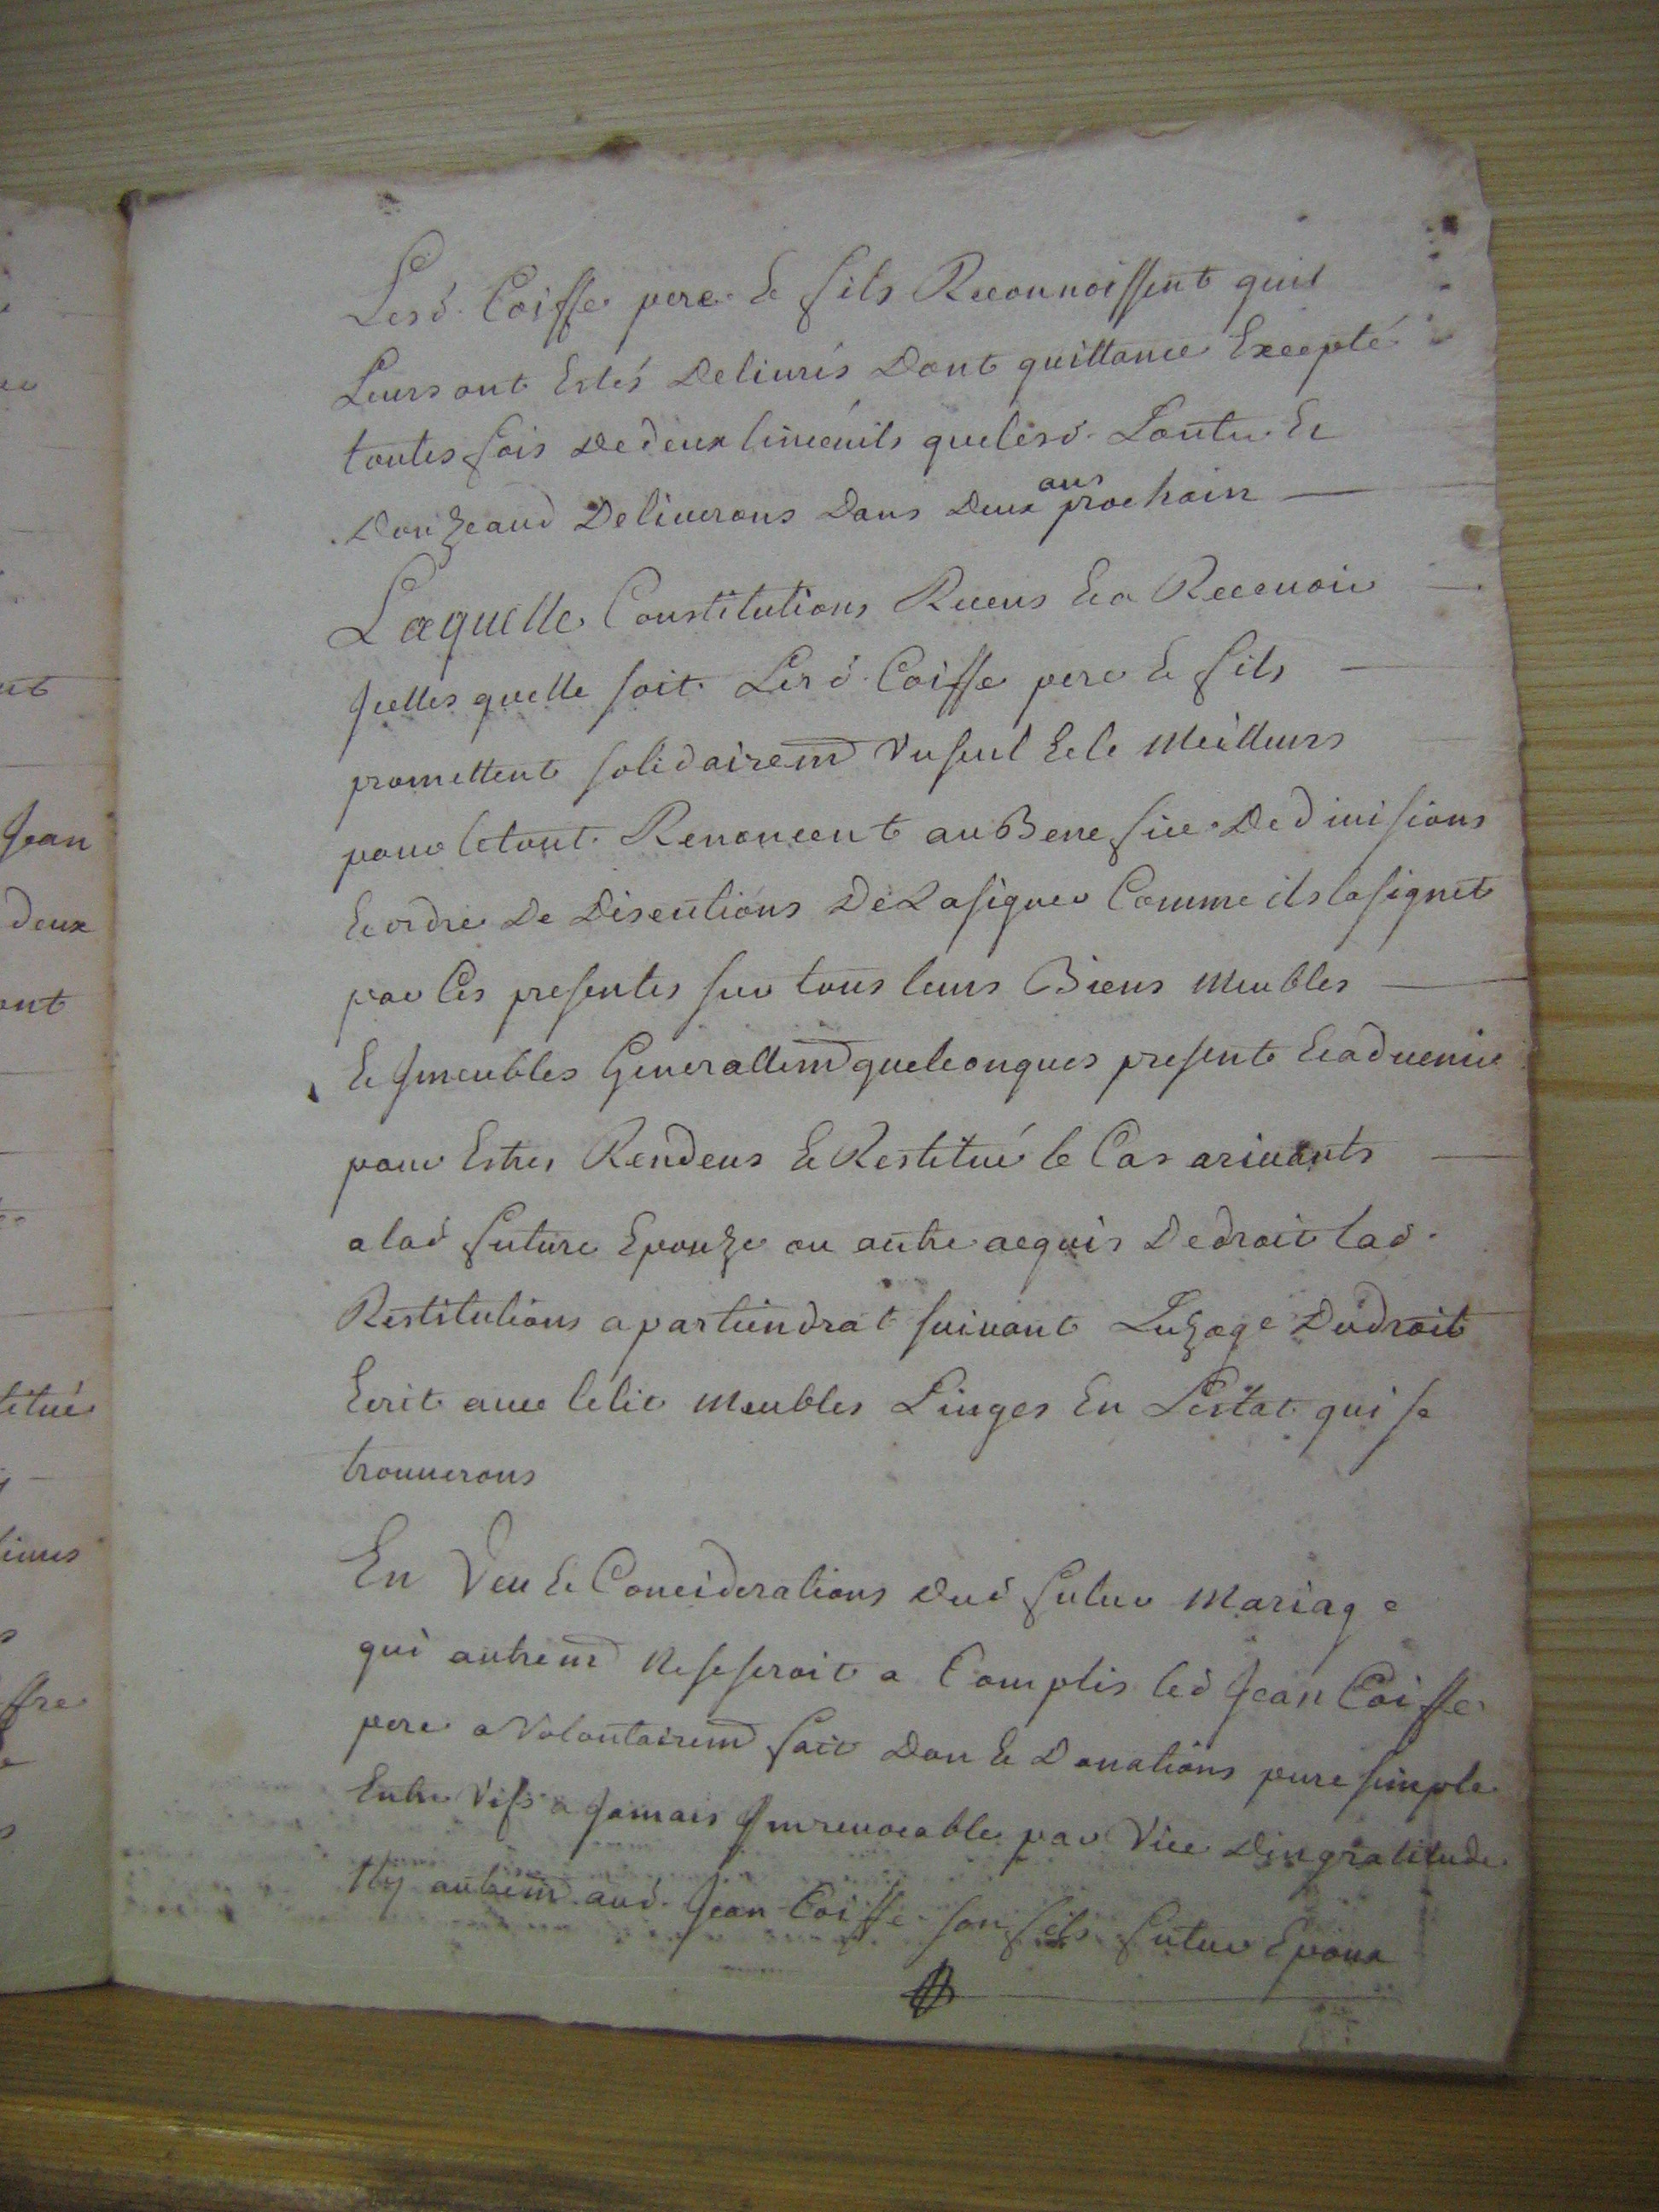 Lesd. Coiffe pere & fils Reconnoissent quil
Leurs ont Estés Deliurés Dont quittance Excepté
toutesfois De deux linceuils quelesd. Loutre &
Dougeaud Deliurerons Dans Deux an prochain
Laquelle Constitutions Receus & a Receuoir
Telles quelle soit Lesd. Coiffe pere & fils
promettent solidairem̄ Un seul & le meilleurs
pour le tout Renoncent au Benefice De diuisions
& ordre De Discutions De L'asigner Comme ils lasignent
par les presentes sur tous leurs Biens meubles
& Jmeubles Generallem̄ quelconques presents & aduenir
pour Estres Rendeus & Restitué le Cas ariuants
a lad. future Epouze ou autre acquis De droit lad.
Restitutions apartiendrat suiuant Lusage Dudroit
Ecrit auec le lit meubles Linges En Lestat quis
trouuerons
En Veu & Conciderations Dud. futur Mariage
qui autrem̄ Ne seroit a Complis led. Jean Coiffe
pere a Volontairem̄ fait Don & Donations pure simple
Entre Vifs & Jamais Jnreuocables par Vice Dingratitude
Ny autrem̄ aud. Jean Coiffe son fils futur Epoux